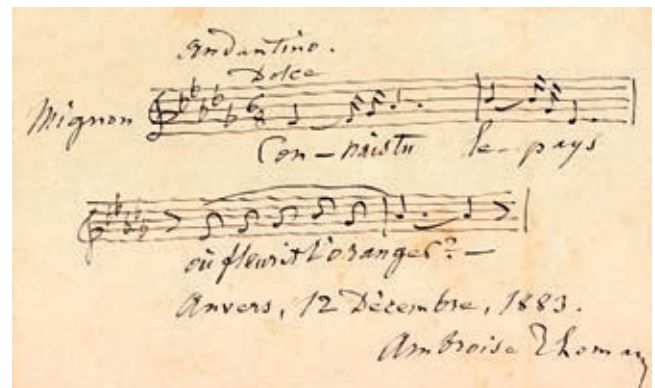 Andantino.
Dolce
Mignon
Con – nais tu le pays
où fleurit l'oranger? –
Anvers, 12 Décembre, 1883.
Ambroise Thomas